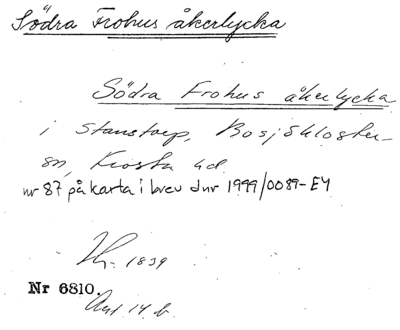 Södra Frohus åkerlycka
Södra Frohus åkerlycka
i Stanstorp, Bosjökloster-
sn, Frosta hd.
nr 87 på karta i brev dnr 1999/0089-EY
1839
Nr 6810.
Art 14 b